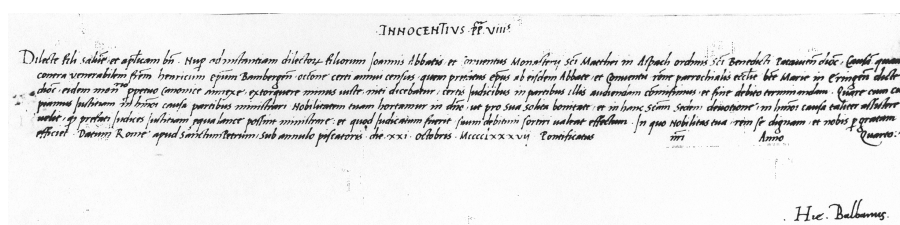 INNOCENTIVS · PP · VIIIs
Dilecte fili salutem et aplicam bn. Nup ad instantiam dilector filiorum Joannis Abbatis et Conventus Monastery sci Matthei in Aspach ordinis sci Benedicti Patavien dioc. Causã quam
contra venerabilem frem henricum epum Bambergen occone certi annui census, quem prefatus epus ab eisdem Abbate et Conventu rone parrochialis ecclie bte Marie in Eringen dicte
dioc. eidem mon ppetuo canonice annexe, extorquere minus iuste niti dicebatur, certis Judicibus in partibus illis audiendam comisimus, et fine debito terminandam. Quare cum cu
piamus justitiam in hmoi causa partibus ministrari Nobilitatem tuam hortamur in dno, ut pro tua solita bonitate, et in hanc scam Sedem devotione, in hmoi causa taliter assistere
velit, qp prefati Judices Justitiam equa lance possint ministrare, et quod judicatum fuerit suum debitum sortiri valeat effectum. In quo Nobilitas tua rem se dignam, et nobis p gratam
efficiet. Datum Rome apud Sanctumpetrum, sub annulo piscatoris, die xxi octobris Mcccclxxxvij Pontificatus nri Anno Quarto.
Hie. Balbanus.